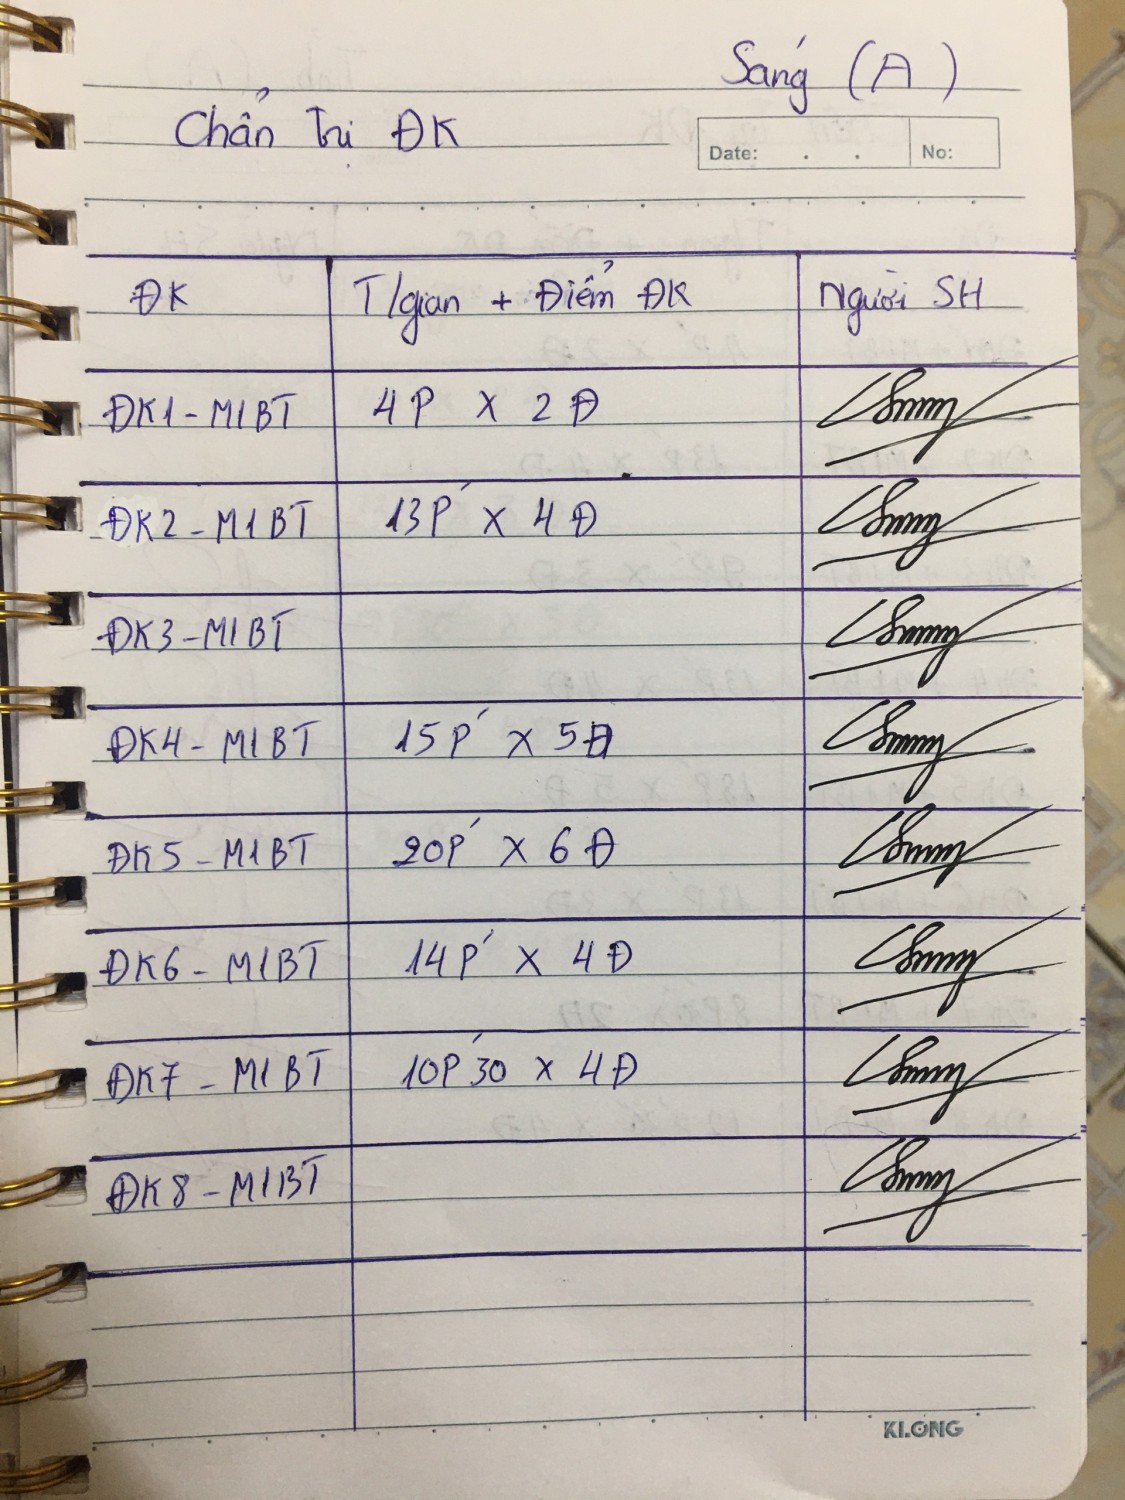 Sáng (A)
Chẩn Trị ĐK
Date: . . No:
ĐK T/gian + Điểm ĐK Người SH
ĐK1 - M1BT 4P X 2Đ
ĐK2 - M1BT 13P' X 4Đ
ĐK3 - M1BT
ĐK4 - M1BT 15P' X 5Đ
ĐK5 - M1BT 20P' X 6Đ
ĐK6 - M1BT 14P' X 4Đ
ĐK7 - M1BT 10P'30 X 4Đ
ĐK8 - M1BT
KLONG